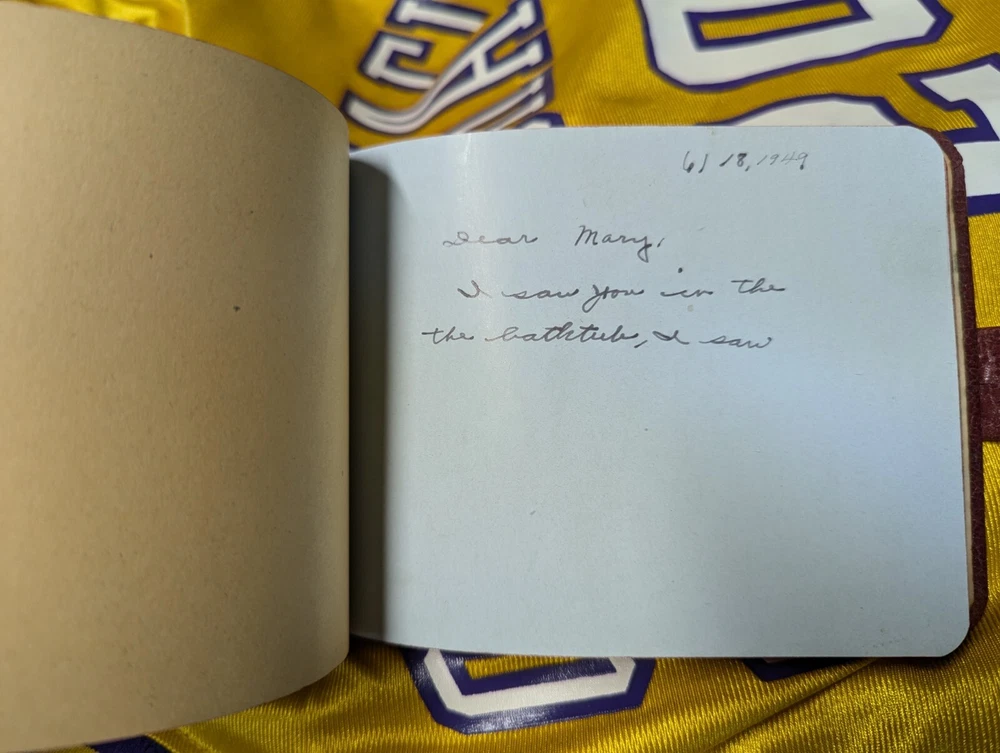 6/18,1949
Dear Mary,
I saw you in the
the bathtub, I saw